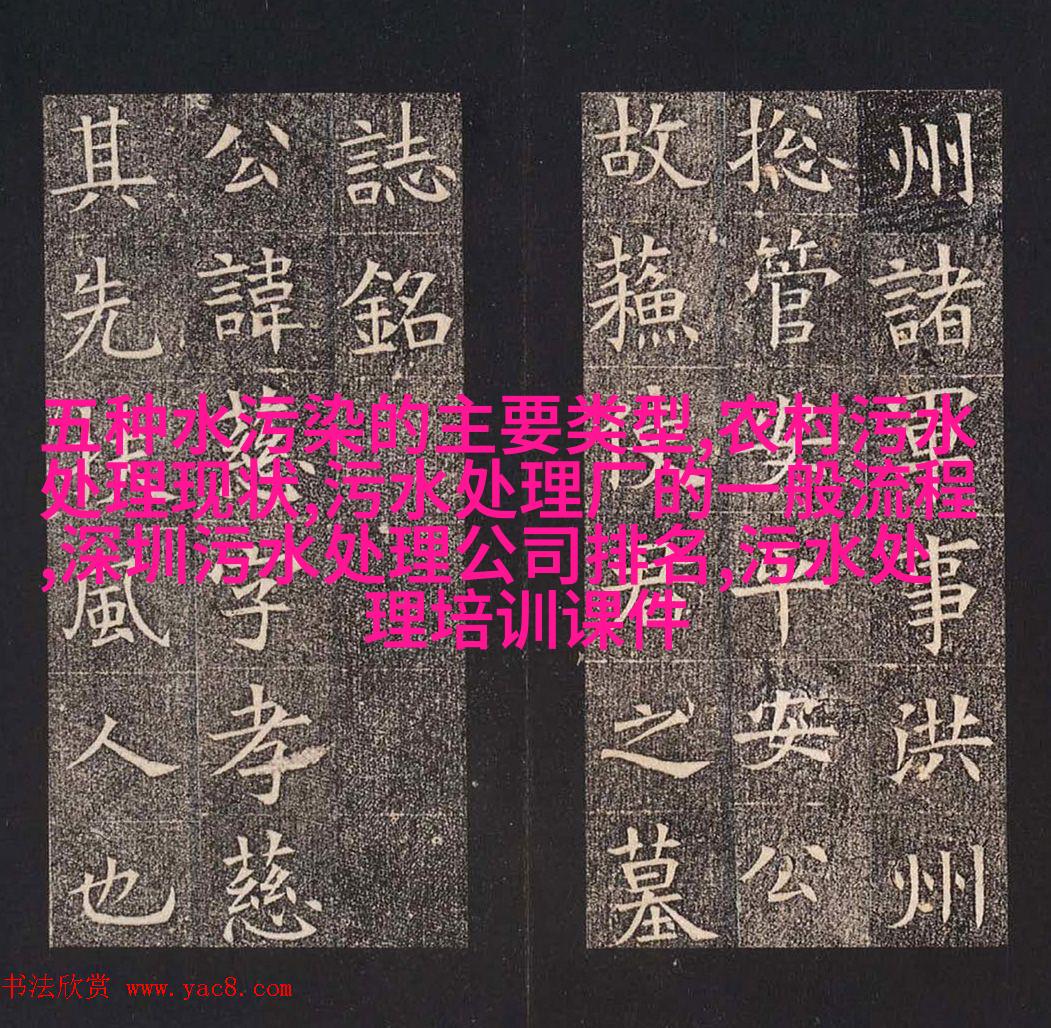 州諸軍事洪州
揔管平安公
故蘇之墓
誌銘
公諱慈字孝慈
其先風人也
五种水污染的主要类型,农村污水
处理现状,污水处理厂的一般流程
,深圳污水处理公司排名,污水处
理培训课件
书法欣赏 www.yac8.com